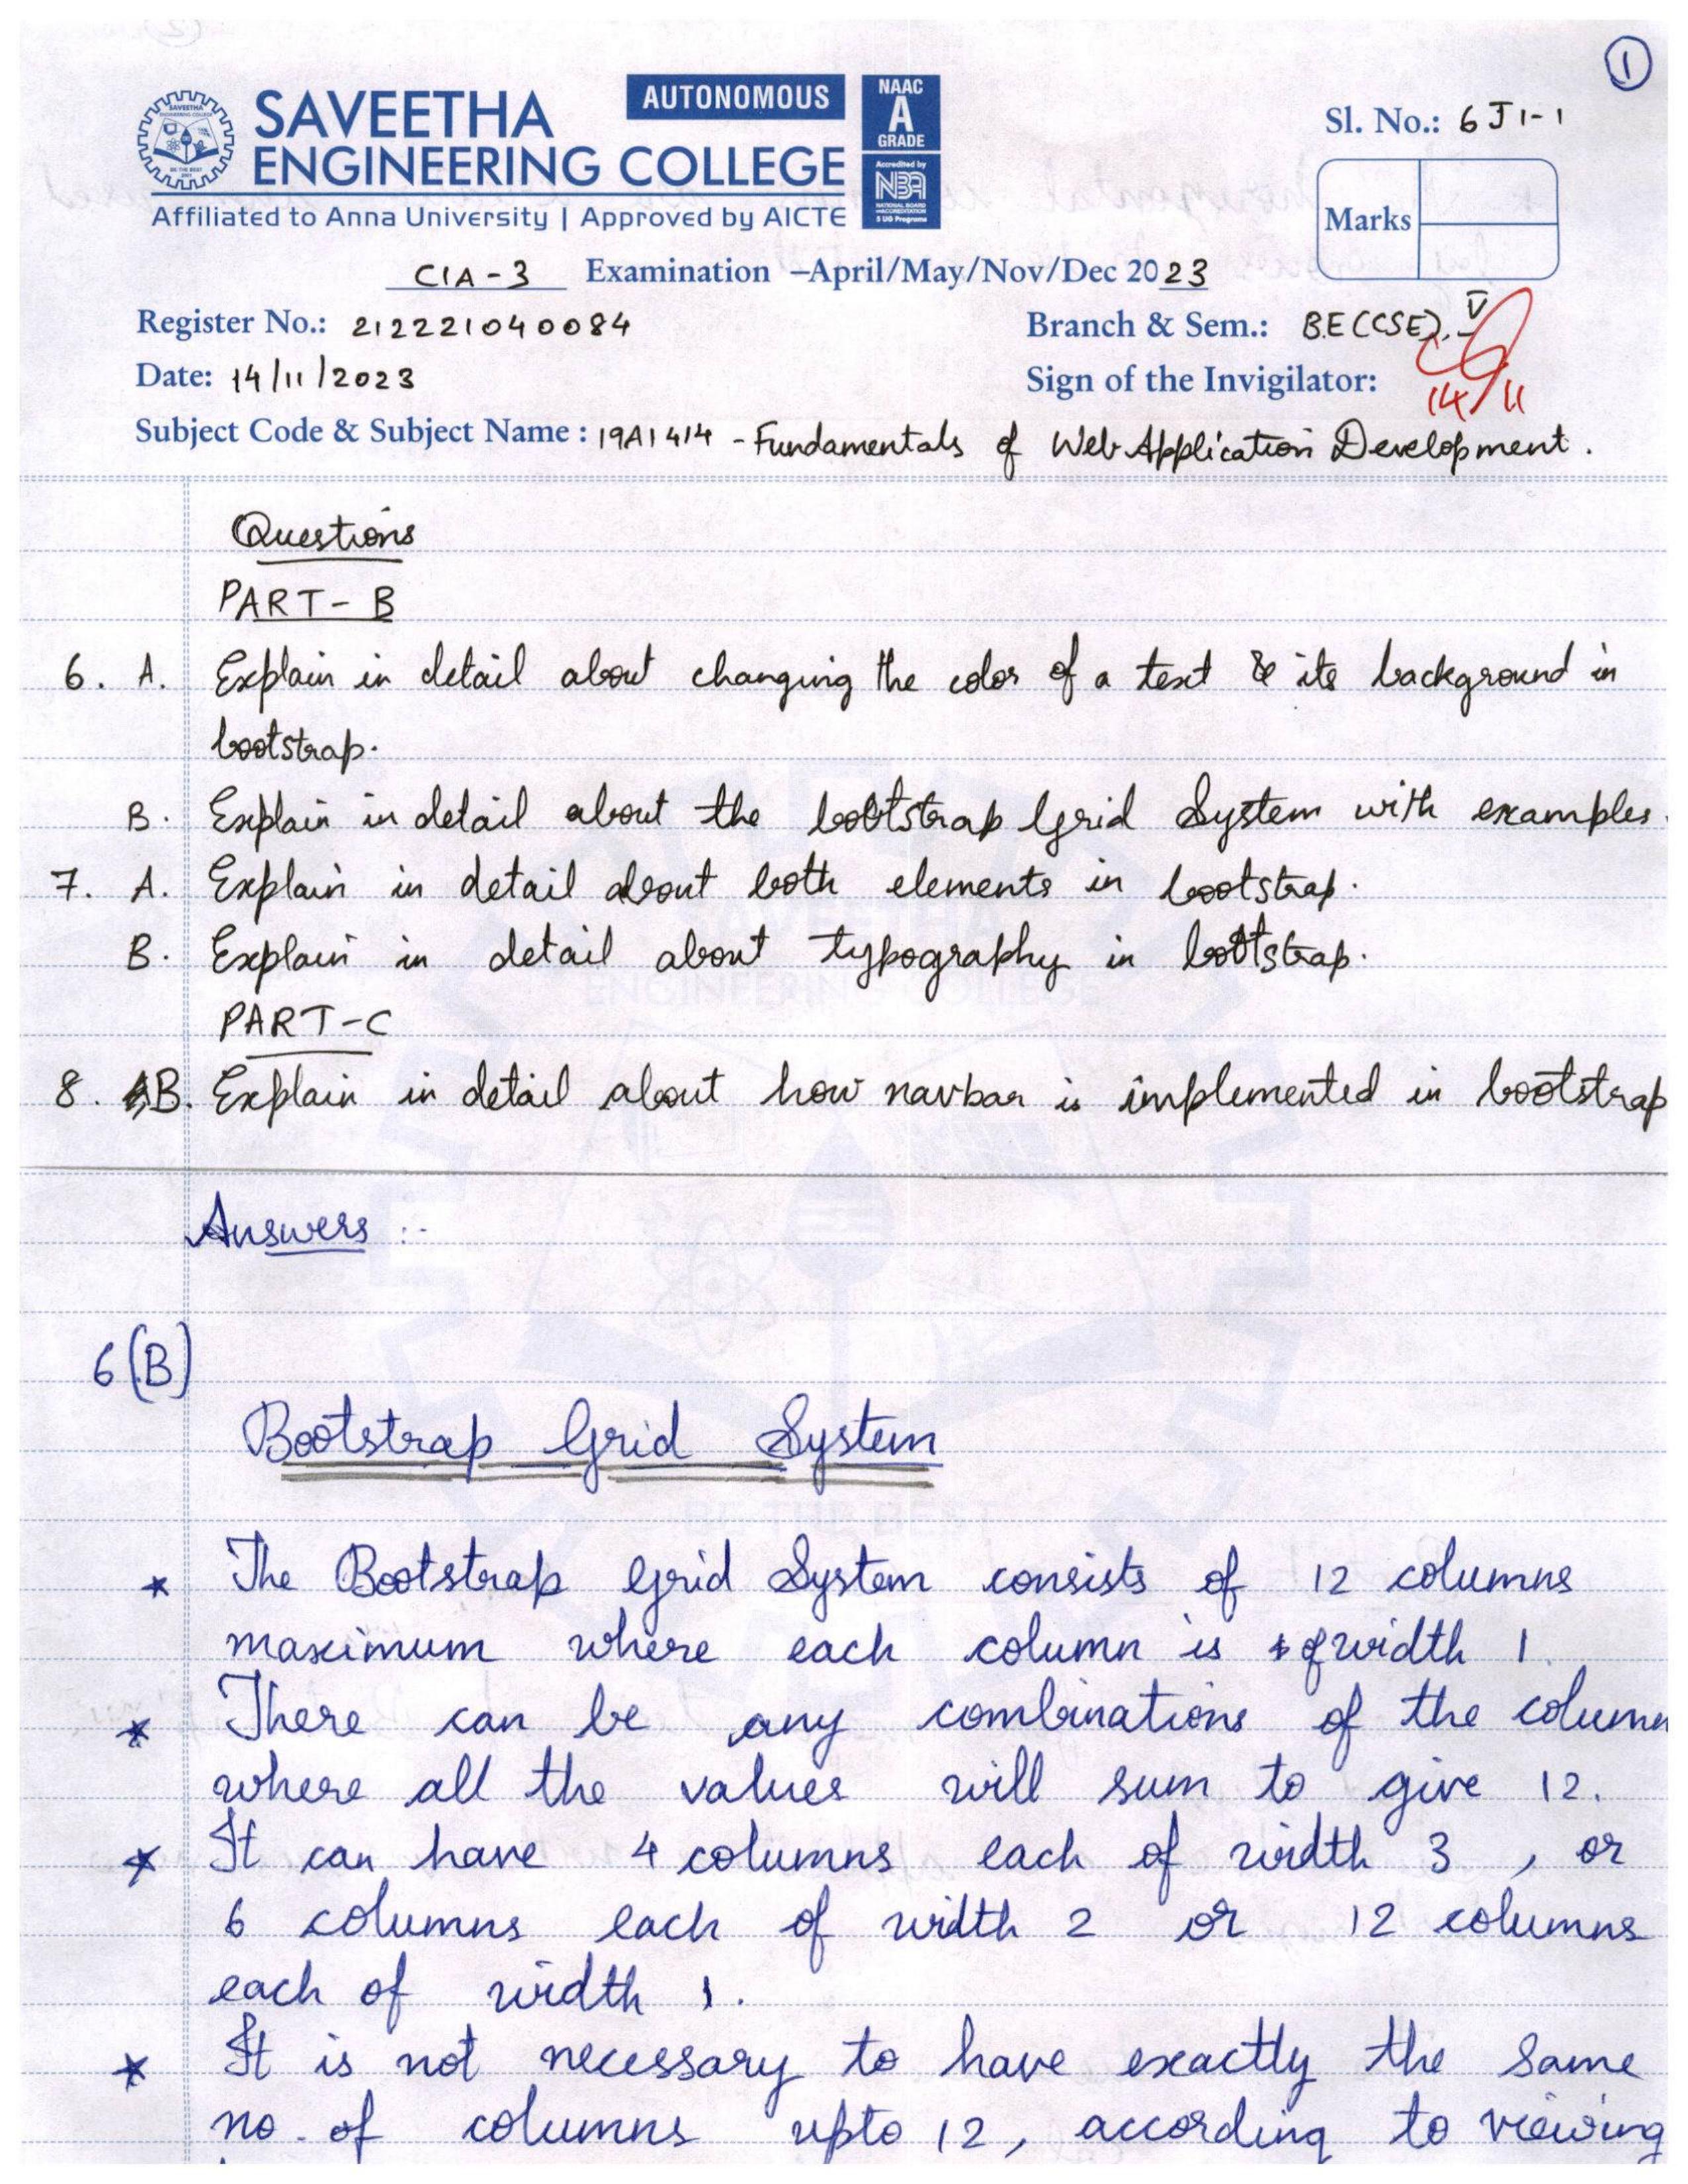 1
SAVEETHA
ENGINEERING COLLEGE
AUTONOMOUS
NAAC
A
GRADE
Accredited by
NBA
NATIONAL BOARD
of ACCREDITATION
5 UG Programs
Affiliated to Anna University | Approved by AICTE
Sl. No.: 6J1-1
Marks
CIA-3 Examination –April/May/Nov/Dec 2023
Register No.: 212221040084
Branch & Sem.: B.E (CSE), V
Date: 14/11/2023
Sign of the Invigilator:
14/11
Subject Code & Subject Name : 19AI414 - Fundamentals of Web Application Development.
Questions
PART-B
6. A. Explain in detail about changing the color of a text & its background in
bootstrap.
B. Explain in detail about the bootstrap Grid System with examples.
7. A. Explain in detail about both elements in bootstrap.
B. Explain in detail about typography in bootstrap.
PART-C
8. B. Explain in detail about how navbar is implemented in bootstrap
Answers :-
6(B)
Bootstrap Grid System
* The Bootstrap Grid System consists of 12 columns
maximum where each column is of width 1.
* There can be any combinations of the column
where all the values will sum to give 12.
* It can have 4 columns each of width 3, or
6 columns each of width 2 or 12 columns
each of width 1.
* It is not necessary to have exactly the same
no. of columns upto 12, according to viewing